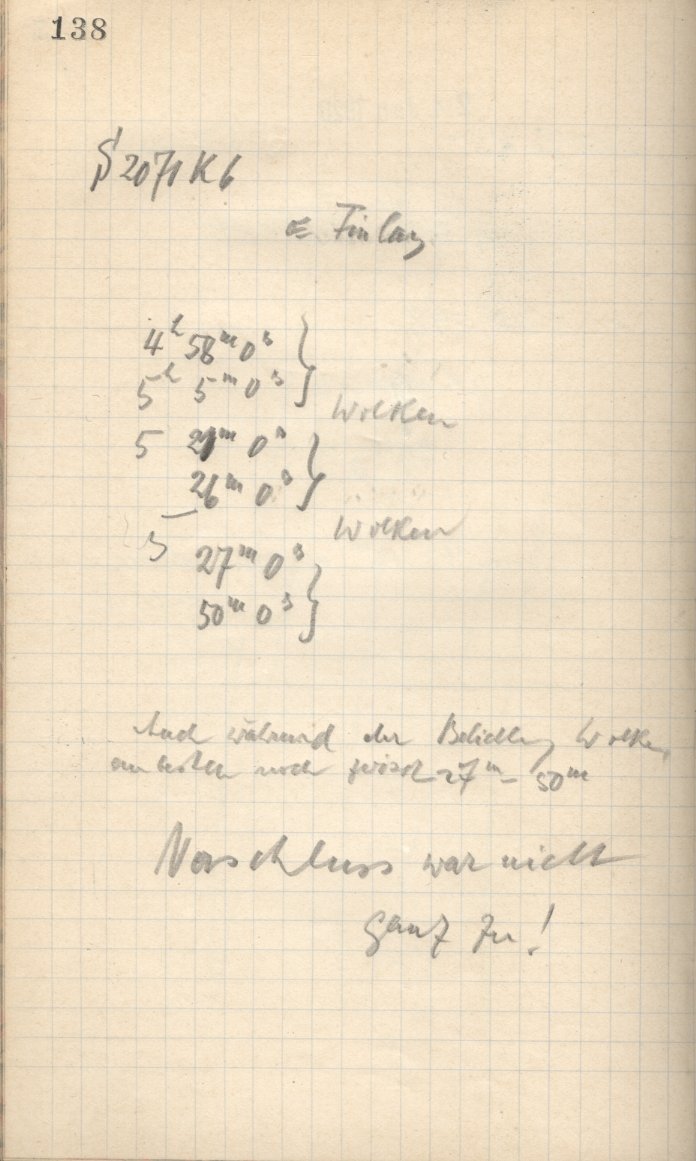 138
2071 K 6
Finlay
4h 58m 0s
5h 5m 0s
Wolken
5 21m 0s
26m 0s
Wolken
5 27m 0s
50m 0s
Auch während der Belichtung Wolken
am besten noch zwisch 27m – 50m
Verschluss war nicht
ganz zu!